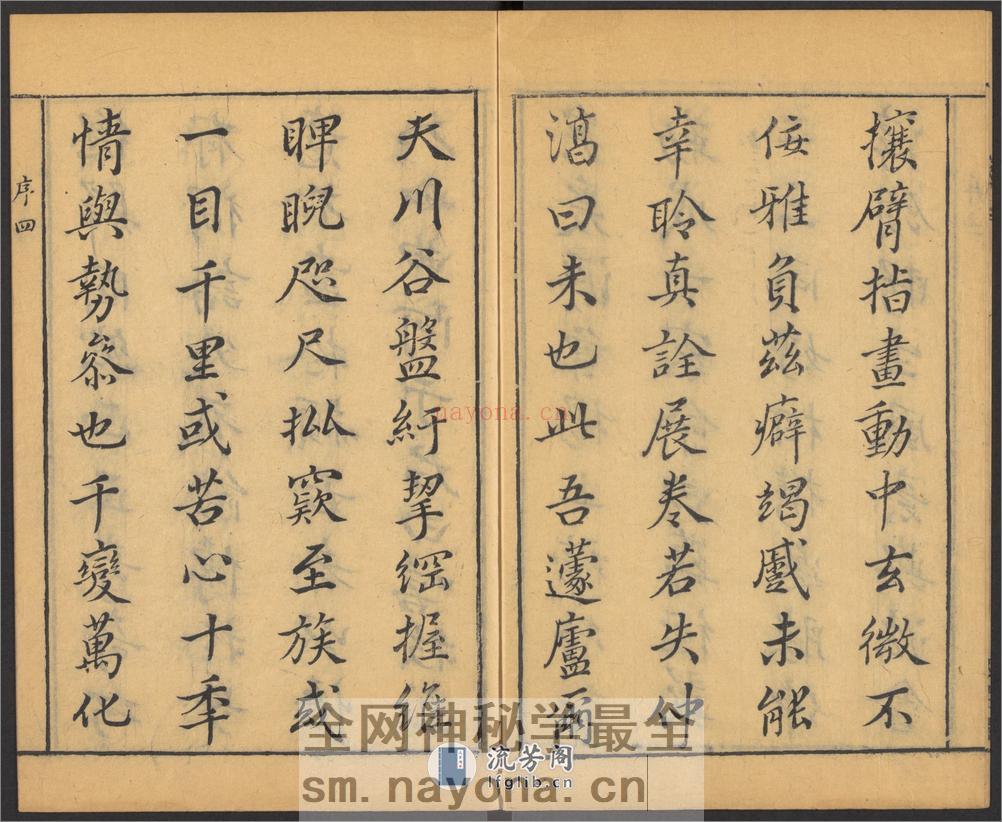 攘臂指畫動中玄微不
佞雅負茲癖竭蹷未能
幸聆真詮展卷若失仲
滈曰未也此吾蘧廬爾
夫川谷盤紆挈綱握維
睥睨咫尺批窾至族或
一目千里或苦心十年
情與勢叅也千變萬化
序四
nayona.cn
全网神秘学最全
流芳阁
lfglib.cn
sm.nayona.cn